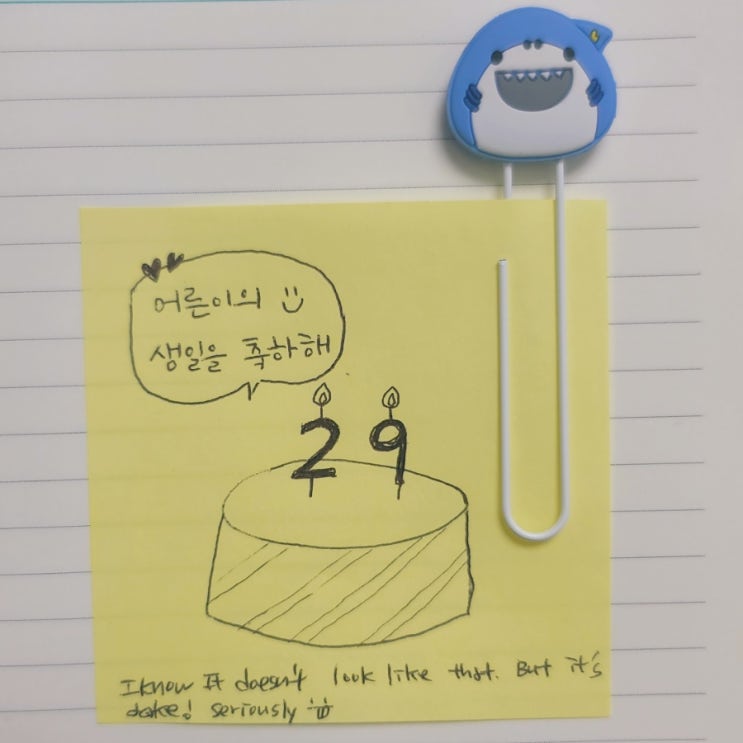 어른이의
생일을 축하해
29
I know It doesn't look like that. But it's
dake! seriously